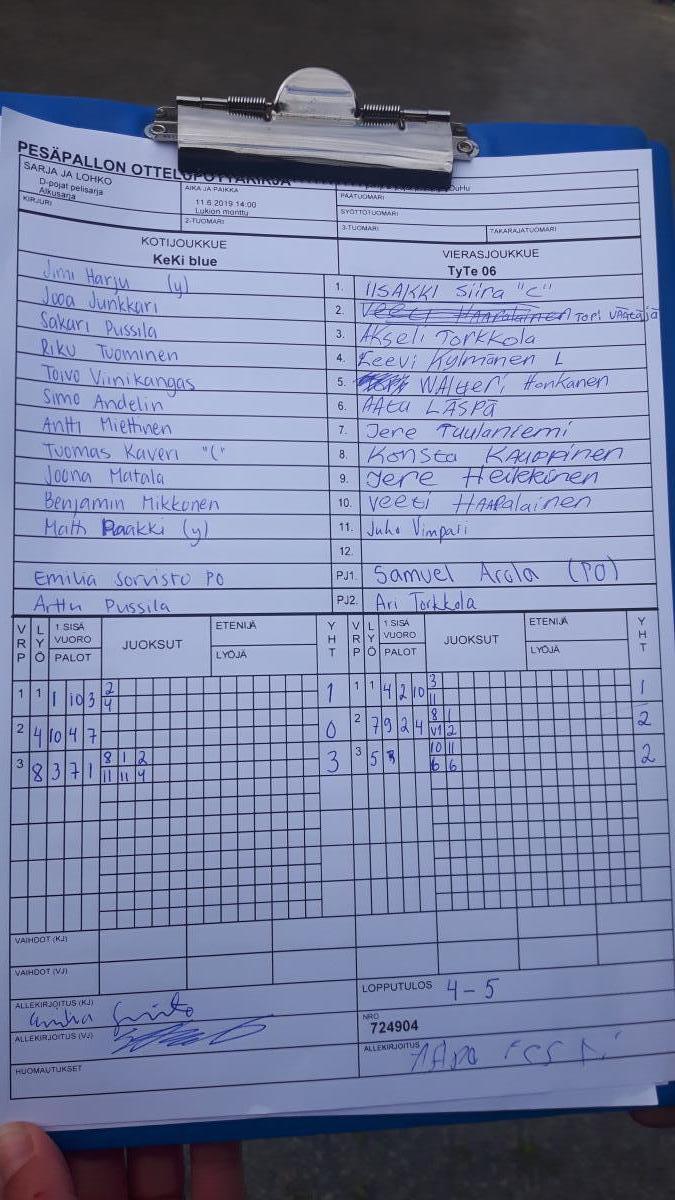 PESÄPALLON OTTELUPÖYTÄKIRJA
SARJA JA LOHKO
D-pojat pelisarja
Alkusarja
AIKA JA PAIKKA
11.6 2019 14:00
Lukion monttu
DuHu
PÄÄTUOMARI
SYÖTTÖTUOMARI
KIRJURI
2-TUOMARI
3-TUOMARI
TAKARAJATUOMARI
KOTIJOUKKUE
VIERASJOUKKUE
KeKi blue
TyTe 06
Jimi Harju (y) 1. IISAKKI Siira "C"
Jooa Junkkari 2. Veeti HAAPAlainen Topi VÄÄTÄJÄ
Sakari Pussila 3. AKseli TORKKOLA
Riku Tuominen 4. Eeevi Kylmänen L
Toivo Viinikangas 5. WALtteri Honkanen
Simo Andelin 6. AAtu LÄSPÄ
Antti Miettinen 7. Jere Tuulaniemi
Tuomas Kaveri "C" 8. Konsta KAUPPinen
Joona Matala 9. Jere Heikkinen
Benjamin Mikkonen 10. Veeti HAAPAlainen
Matti Paakki (y) 11. Juho Vimpari
12.
Emilia Sorvisto PO PJ1. Samuel Arola (PO)
Arttu Pussila PJ2. Ari Torkkola
VRP LYÖ 1 SISÄ VUORO PALOT JUOKSUT ETENIJÄ LYÖJÄ YHT VRP LYÖ 1 SISÄ VUORO PALOT JUOKSUT ETENIJÄ LYÖJÄ YHT
1 1 1 10 3 2 1 1 1 4 2 10 3 1
4 11
2 4 10 4 7 0 2 7 9 2 4 8 1 2
V1 2
3 8 3 7 1 8 1 2 3 3 5 10 11 2
11 11 4 6 6
VAIHDOT (KJ)
VAIHDOT (VJ)
ALLEKIRJOITUS (KJ)
LOPPUTULOS 4-5
ALLEKIRJOITUS (VJ)
NRO
724904
HUOMAUTUKSET
ALLEKIRJOITUS